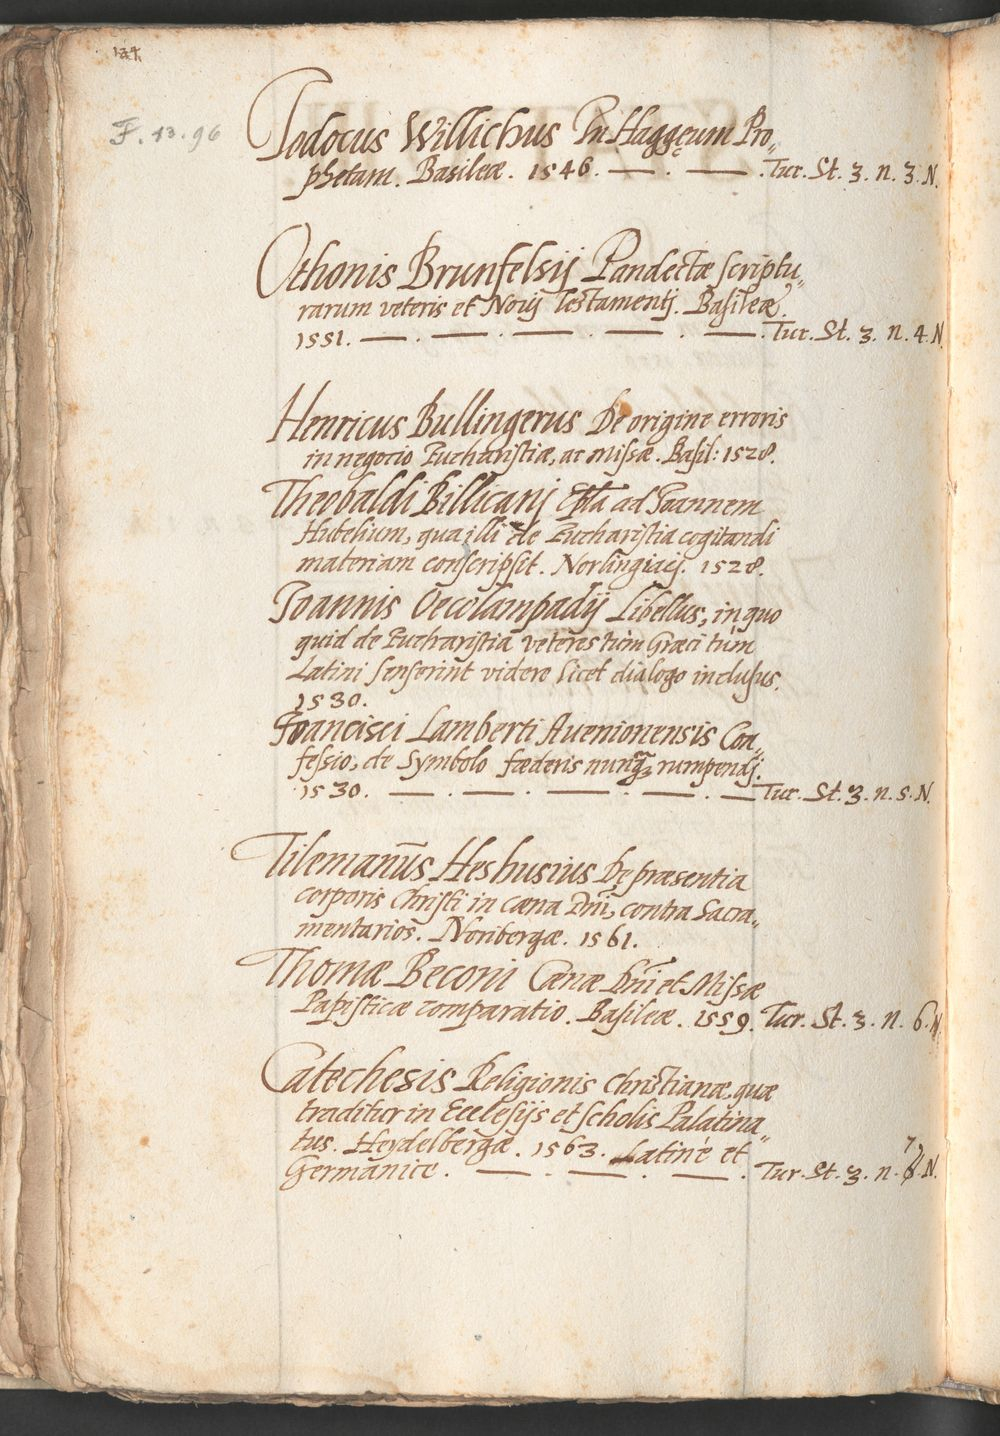 124.
F. 13. 96
Jodocus Willichus In Haggęum Pro„
phetam. Basileæ. 1546. — . — . Tur. St. 3. n. 3. N.
Othonis Brunfelsij Pandectæ scriptu„
rarum veteris et Novij Testamentj. Basileæ.
1551. — . — . — . — . — . Tur. St. 3. n. 4. N.
Henricus Bullingerus De origine erroris
in negocio Eucharistiæ, ac missæ. Basil: 1528.
Theobaldi Billicanj Epła ad Joannem
Hubelium, qua illi de Eucharistia cogitandi
materiam conscripsit. Norlingiacj. 1528.
Joannis Oecolampadij Libellus, in quo
quid de Eucharistia veteres tùm Græci tùm
Latini senserint videre licet dialogo inclusus.
1530.
Francisci Lamberti Avenionensis Con„
fessio, de Symbolo fœderis nunq̃3 rumpendj.
1530. — . — . — . — . — Tur. St. 3. n. 5. N.
Tilemañus Heshusius De præsentia
corporis Christi in cæna Dñi, contra Sacra„
mentarios. Noribergæ. 1561.
Thomæ Beconi Cænæ Dñi et Missæ
Papisticæ comparatio. Basileæ. 1559. Tur. St. 3. n. 6. N.
Catechesis Religionis Christianæ, quæ
traditur in Ecclesijs et scholis Palatina„
tus. Heydelbergæ. 1563. Latinè et
Germanice. — . — . — . Tur. St. 3. n. 7 N.